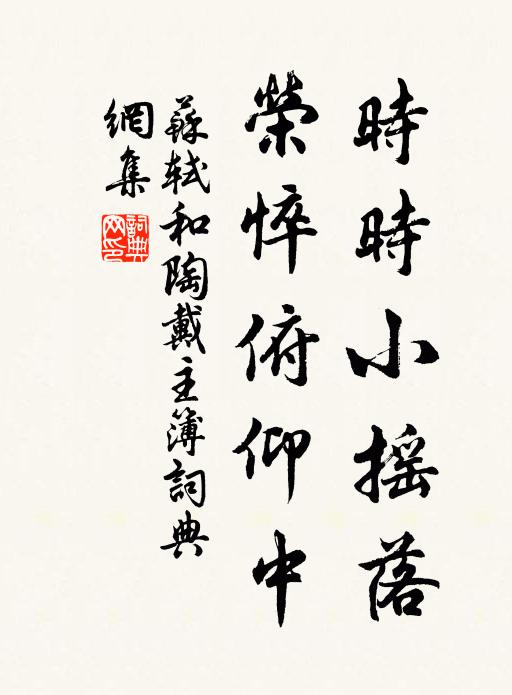 時時小摇落
榮悴俯仰中
蘇軾和陶戴主簿詞典
網集
詞典网印